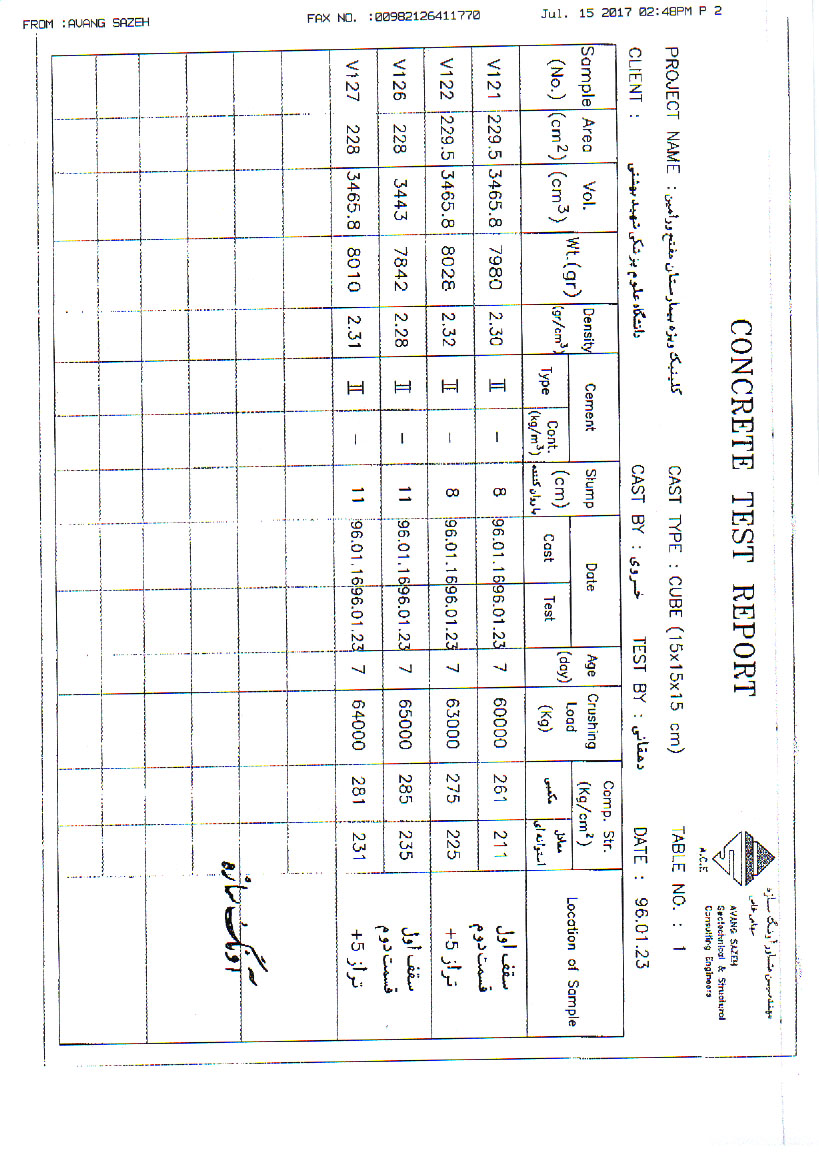 FROM :AVANG SAZEH FAX NO. :00982126411770 Jul. 15 2017 02:48PM P 2
مهندسین مشاور آونگ سازه
سهامی خاص
AVANG SAZEH
Geotechnical & Structural
Consulting Engineers
A.C.E
CONCRETE TEST REPORT
PROJECT NAME : کلینیک ویژه بیمارستان مفتح ورامین CAST TYPE : CUBE (15x15x15 cm) TABLE NO. : 1
CLIENT : دانشگاه علوم پزشکی شهید بهشتی CAST BY : خسروی TEST BY : دهقانی DATE : 96.01.23
Sample (No.) Area (cm2) Vol. (cm3) Wt.(gr) Density (gr/cm3) Cement Type Cont. (kg/m3) Slump (cm) باروان کننده Date Cast Test Age (day) Crushing Load (Kg) Comp. Str. (Kg/cm2) مکعبی معادل استوانه ای Location of Sample
V121 229.5 3465.8 7980 2.30 II – 8 96.01.16 96.01.23 7 60000 261 211
V122 229.5 3465.8 8028 2.32 II – 8 96.01.16 96.01.23 7 63000 275 225
سقف اول
قسمت دوم
تراز 5+
V126 228 3443 7842 2.28 II – 11 96.01.16 96.01.23 7 65000 285 235
V127 228 3465.8 8010 2.31 II – 11 96.01.16 96.01.23 7 64000 281 231
سقف اول
قسمت دوم
تراز 5+
آونگ سازه